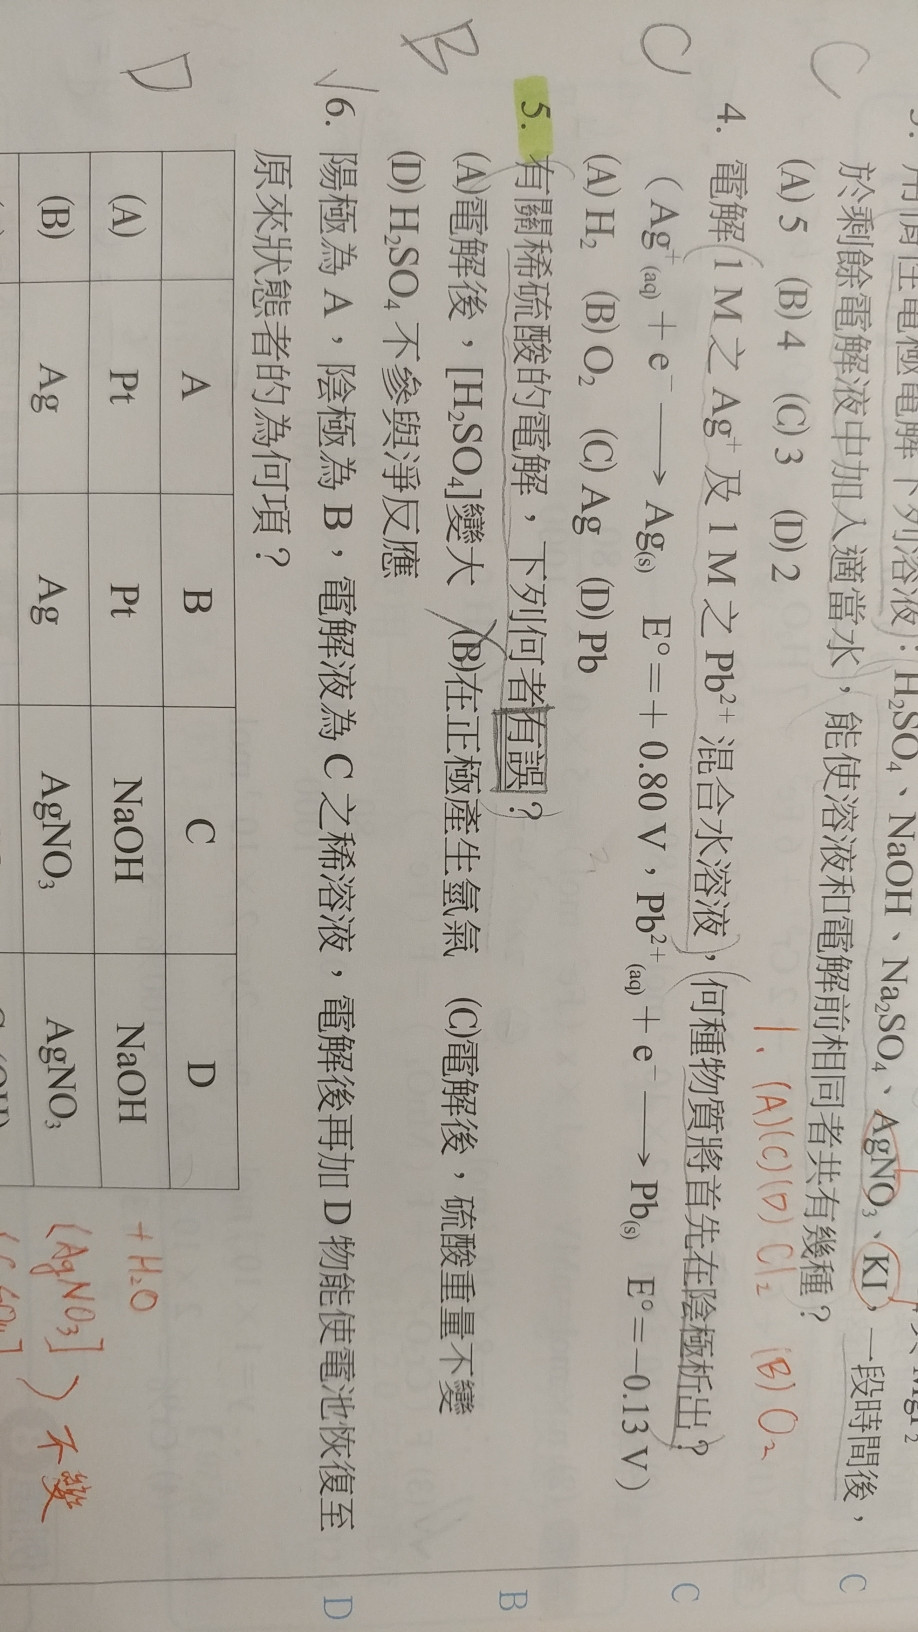 H₂SO₄、NaOH、Na₂SO₄、AgNO₃、KI，一段時間後，
於剩餘電解液中加入適當水，能使溶液和電解前相同者共有幾種？
(A) 5 (B) 4 (C) 3 (D) 2
C
C
1、(A)(C)(D) Cl₂ (B) O₂
4. 電解 1 M 之 Ag⁺ 及 1 M 之 Pb²⁺ 混合水溶液，何種物質將首先在陰極析出？
(Ag⁺(aq) + e⁻ ⟶ Ag(s) E°= + 0.80 V，Pb²⁺(aq) + e⁻ ⟶ Pb(s) E°= −0.13 V)
(A) H₂ (B) O₂ (C) Ag (D) Pb
C
C
5. 有關稀硫酸的電解，下列何者有誤？
(A)電解後，[H₂SO₄]變大 (B)在正極產生氫氣 (C)電解後，硫酸重量不變
(D) H₂SO₄ 不參與淨反應
B
B
6. 陽極為 A，陰極為 B，電解液為 C 之稀溶液，電解後再加 D 物能使電池恢復至
原來狀態者的為何項？
D
D
A B C D
(A) Pt Pt NaOH NaOH +H₂O
(B) Ag Ag AgNO₃ AgNO₃ [AgNO₃] 不變